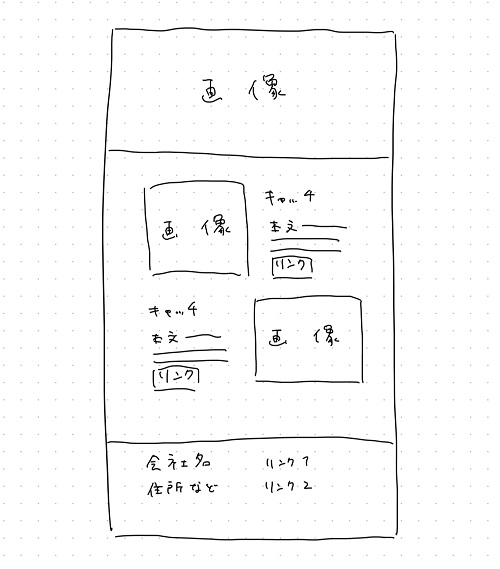 画像
画像
キャッチ
本文
リンク
キャッチ
本文
リンク
画像
会社名
住所など
リンク1
リンク2